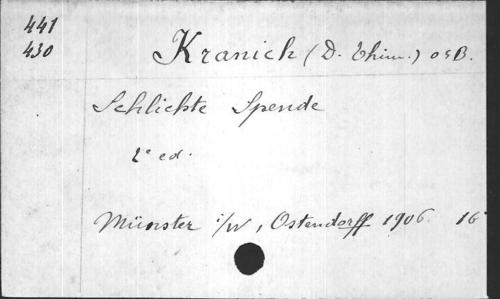 441
430
Kranich (D. Thim.) OSB.
Schlichte Spende
2e ed.
Münster i/W, Ostendorff 1906. 16